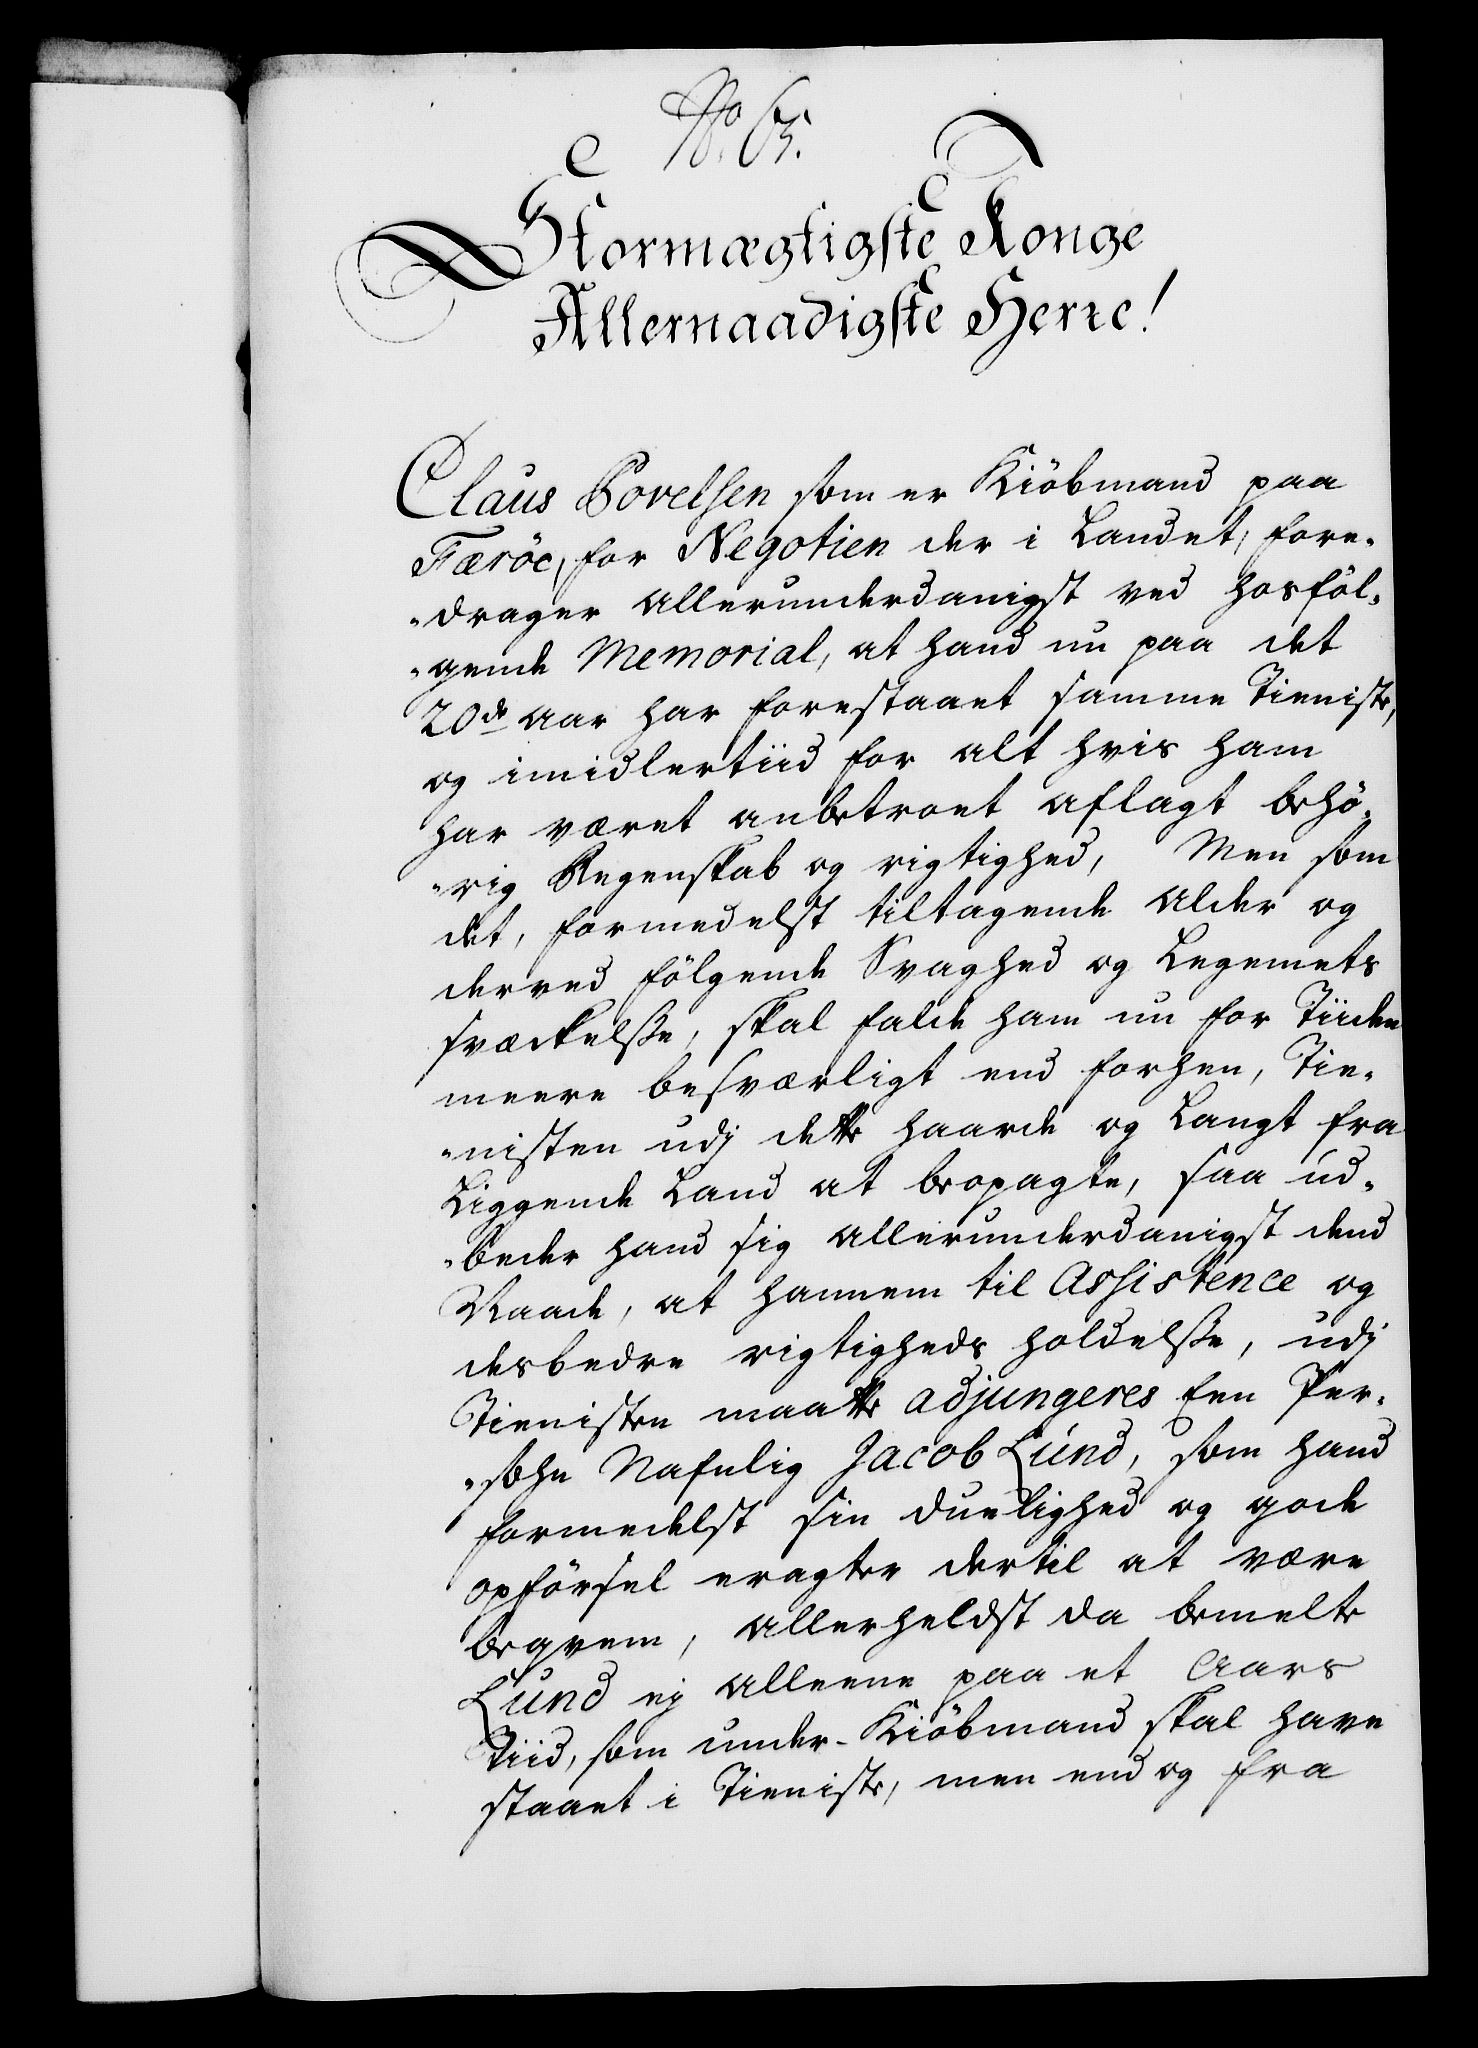 No. 65.
Stormægtigste Konge
Allernaadigste Herre!
Claus Povelsen som er Kiöbmand paa
Færöe, for Negotien der i Landet, fore-
-drager allerunderdanigst ved hosföl-
-gende Memorial, at hand nu paa det
20de Aar har forestaaet samme Tieniste,
og imidlertiid for alt hvis ham
har været anbetroet aflagt behö-
-rig Regenskab og rigtighed, Men som
det, formedelst tiltagende Alder og
derved fölgende Svaghed og Legemets
svæckelsse, skal falde ham nu for Tiiden
meere besværligt end forhen, Tie-
-nisten udj dette haarde og Langt fra
Liggende Land at beopagte, saa ud-
-beder hand sig allerunderdanigst dend
Naade, at hannem til Assistence og
desbedre rigtigheds holdelsse, udj
Tienisten maatte adjungeres Een Per-
-sohn Nafnlig Jacob Lund, som hand
formedelst sin duelighed og gode
opförsel eragter dertil at være
beqvem, allerheldst da bemelte
Lund ej alleene paa et Aars
Tiid, som under-Kiöbmand skal have
staaet i Tieniste, men end og fra